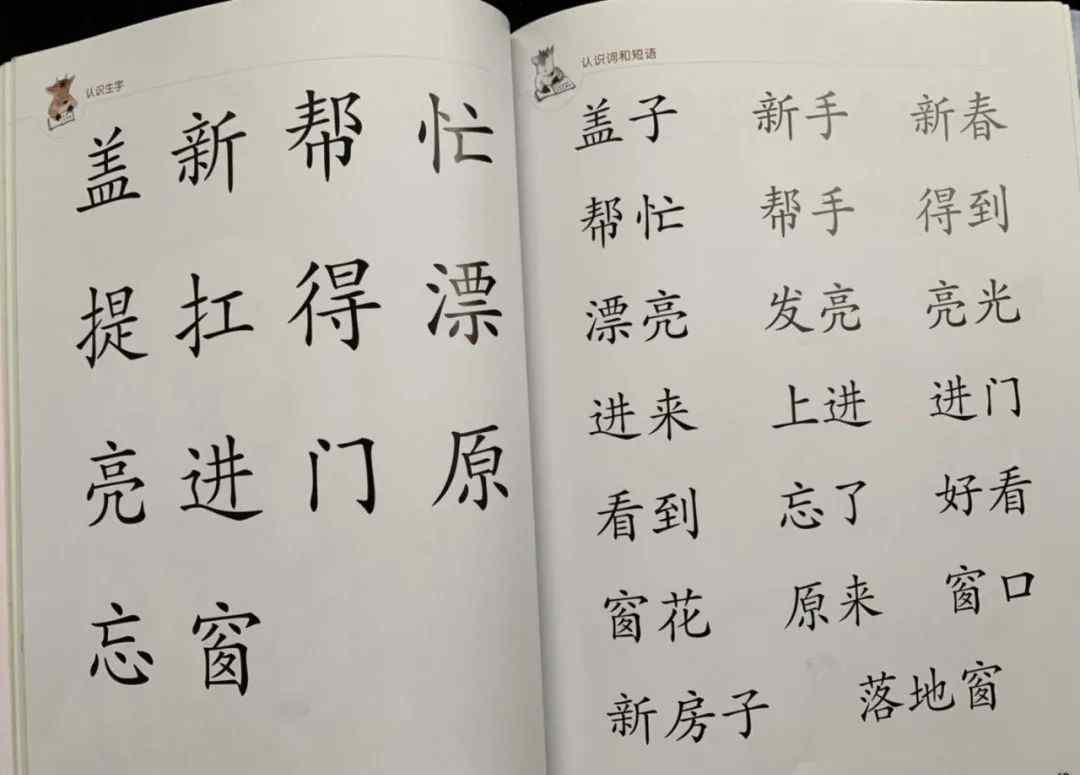 认识生字
盖 新 帮 忙
提 扛 得 漂
亮 进 门 原
忘 窗
认识词和短语
盖子 新手 新春
帮忙 帮手 得到
漂亮 发亮 亮光
进来 上进 进门
看到 忘了 好看
窗花 原来 窗口
新房子 落地窗